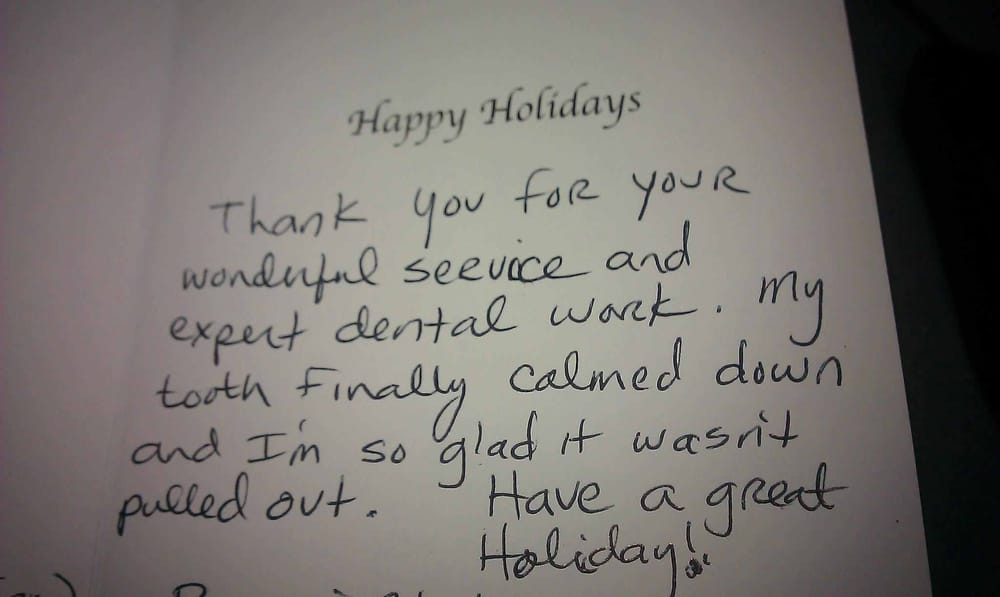 Happy Holidays
Thank you for your
wonderful service and
expert dental work. My
tooth finally calmed down
and I'm so glad it wasn't
pulled out. Have a great
Holiday!!